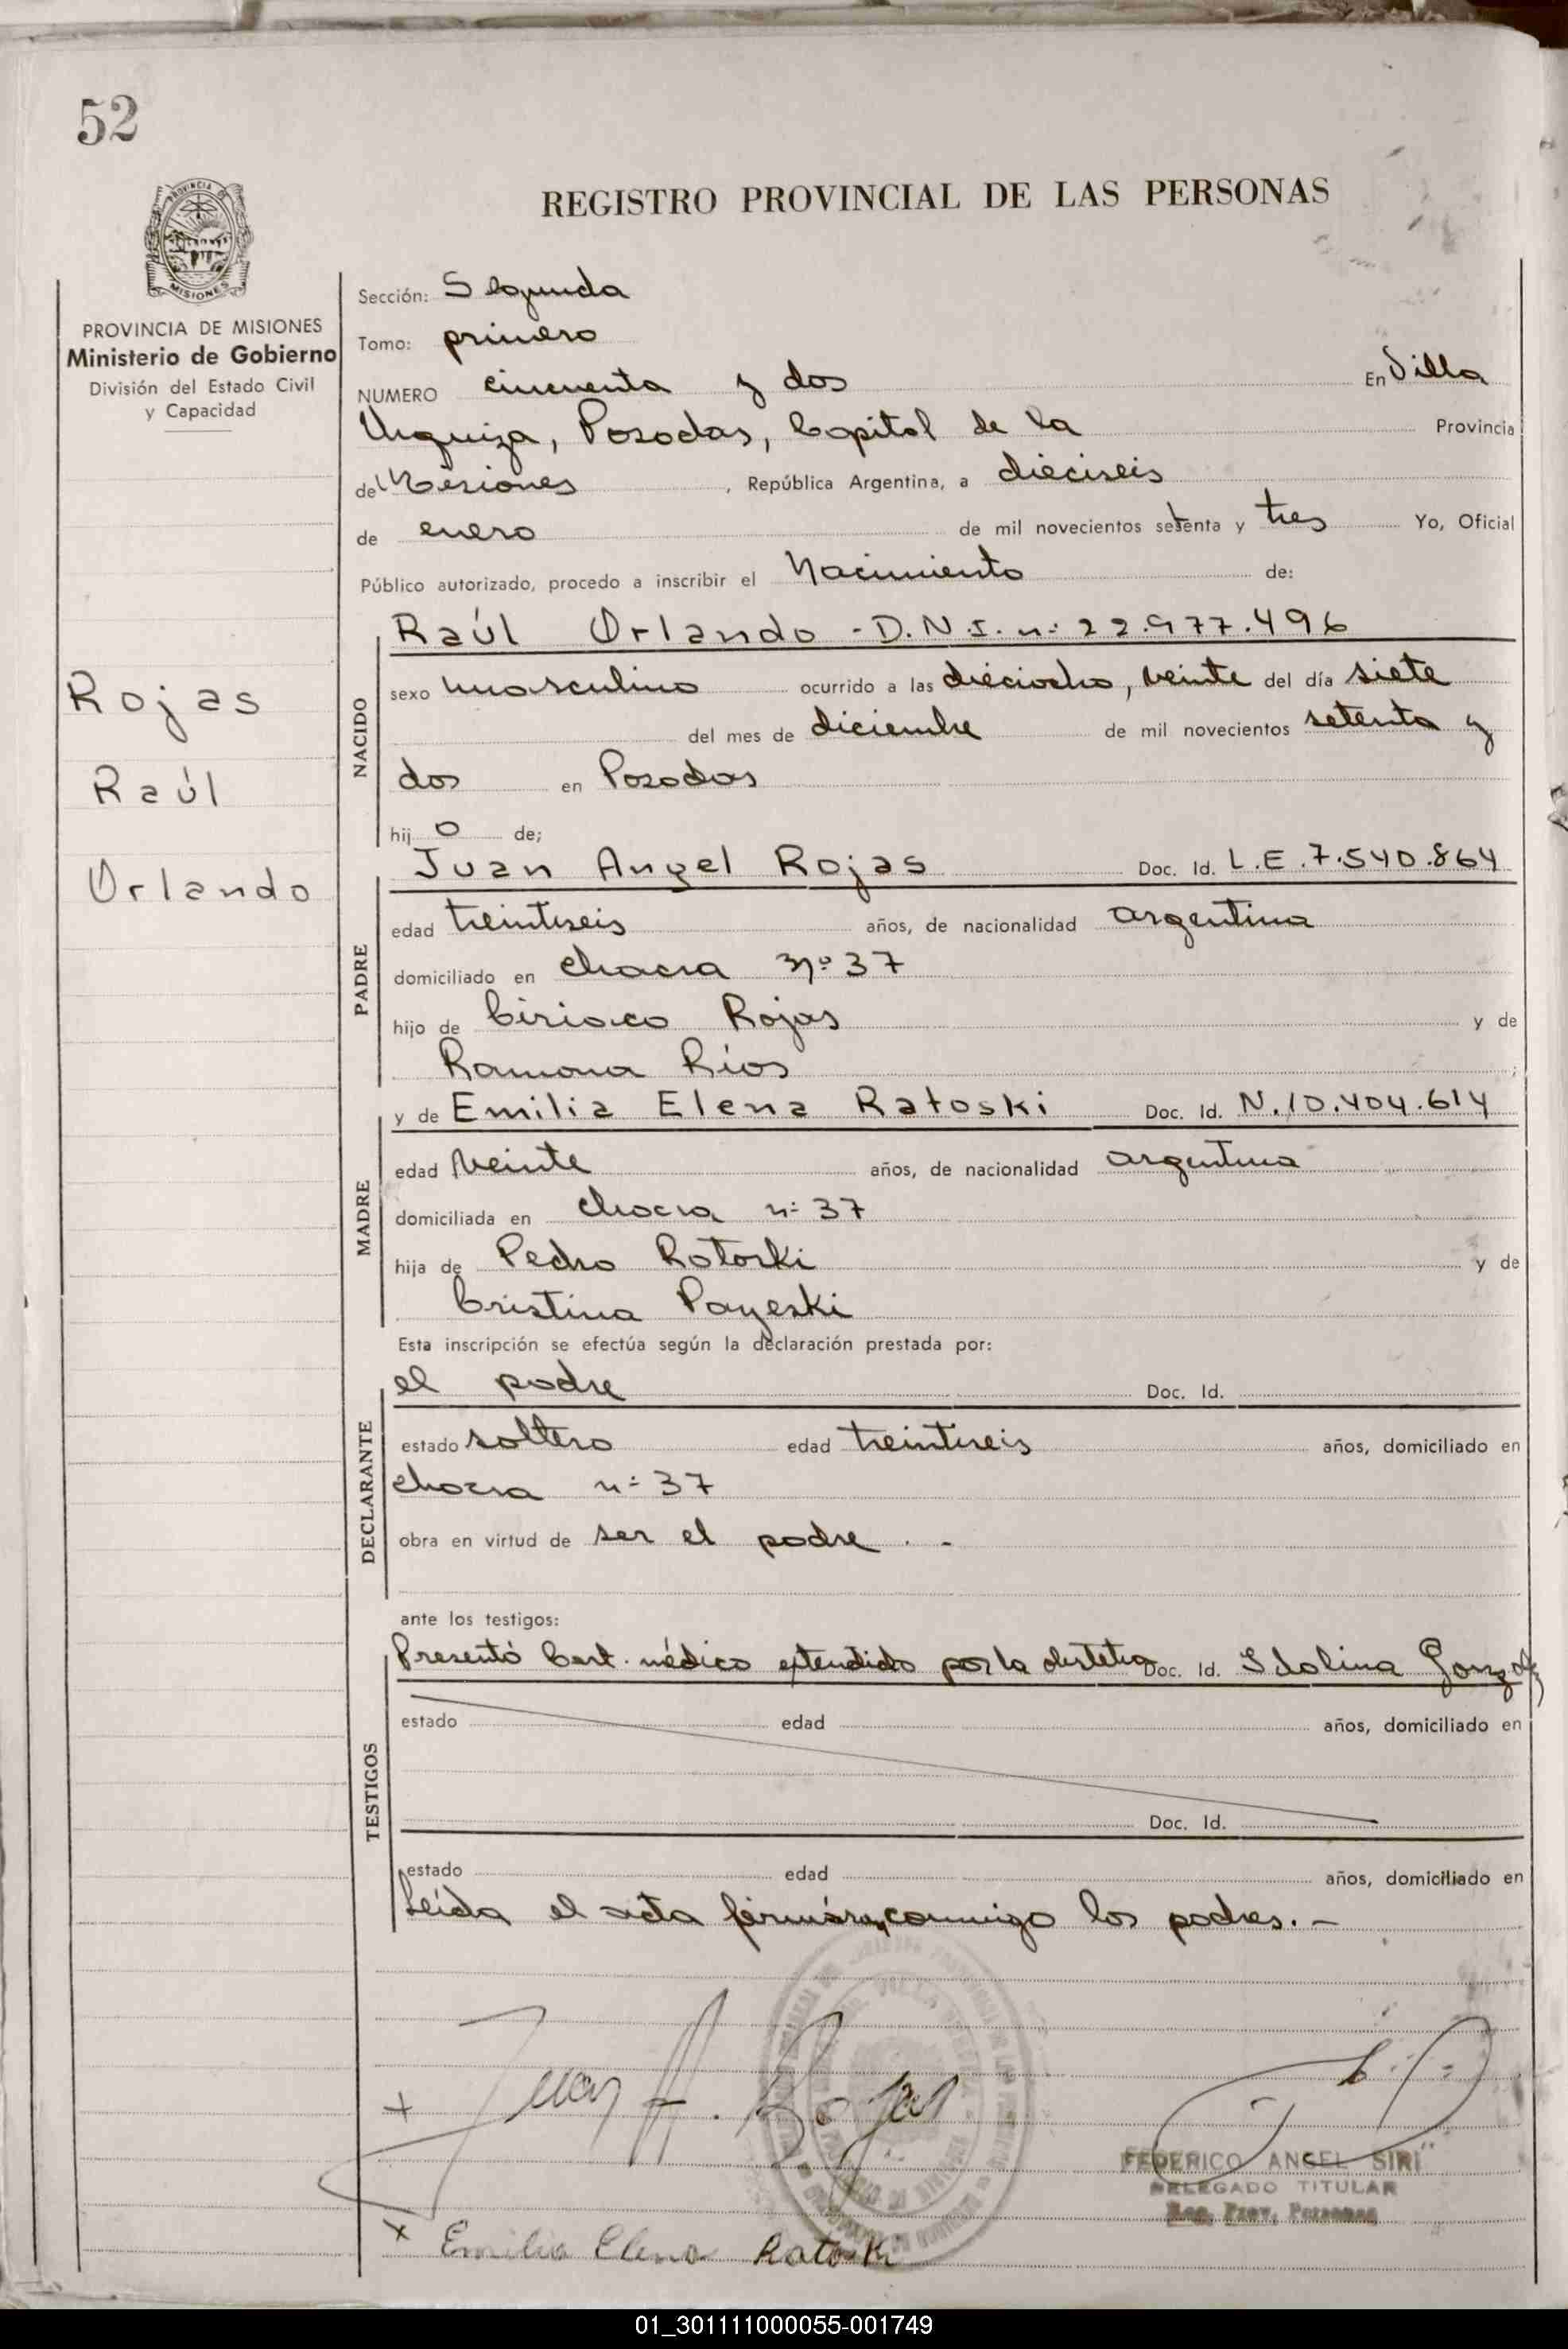 52
REGISTRO PROVINCIAL DE LAS PERSONAS
PROVINCIA DE MISIONES
Ministerio de Gobierno
División del Estado Civil
y Capacidad
Rojas
Raúl
Orlando
Sección: Segunda
Tomo: primero
NUMERO cincuenta y dos En Villa
Urquiza, Posadas, Capital de la Provincia
de Misiones, República Argentina, a dieciseis
de enero de mil novecientos setenta y tres Yo, Oficial
Público autorizado, procedo a inscribir el Nacimiento de:
NACIDO
Raúl Orlando - D.N.I. n: 22.977.496
sexo masculino ocurrido a las dieciocho, veinte del día siete
del mes de diciembre de mil novecientos setenta y
dos en Posadas
hij o de;
PADRE
Juan Angel Rojas Doc. Id. L.E.7.540.864
edad treintiseis años, de nacionalidad argentina
domiciliado en chacra nº 37
hijo de Ciriaco Rojas y de
Ramona Ríos ;
MADRE
y de Emilia Elena Ratoski Doc. Id. N.10.404.614
edad veinte años, de nacionalidad argentina
domiciliada en chacra n: 37
hija de Pedro Ratoski y de
Cristina Payeski
Esta inscripción se efectúa según la declaración prestada por:
DECLARANTE
el padre Doc. Id.
estado soltero edad treintiseis años, domiciliado en
chacra n: 37
obra en virtud de ser el padre . -
ante los testigos:
TESTIGOS
Presentó Cert. médico extendido por la obstetra Doc. Id. Idolina Gonzalez
estado edad años, domiciliado en
Doc. Id.
estado edad años, domiciliado en
Leída el acta firmáran conmigo los padres. -
x Juan A. Rojas
FEDERICO ANGEL SIRI
DELEGADO TITULAR
Reg. Prov. Personas
x Emilia Elena Ratoski
01_301111000055-001749